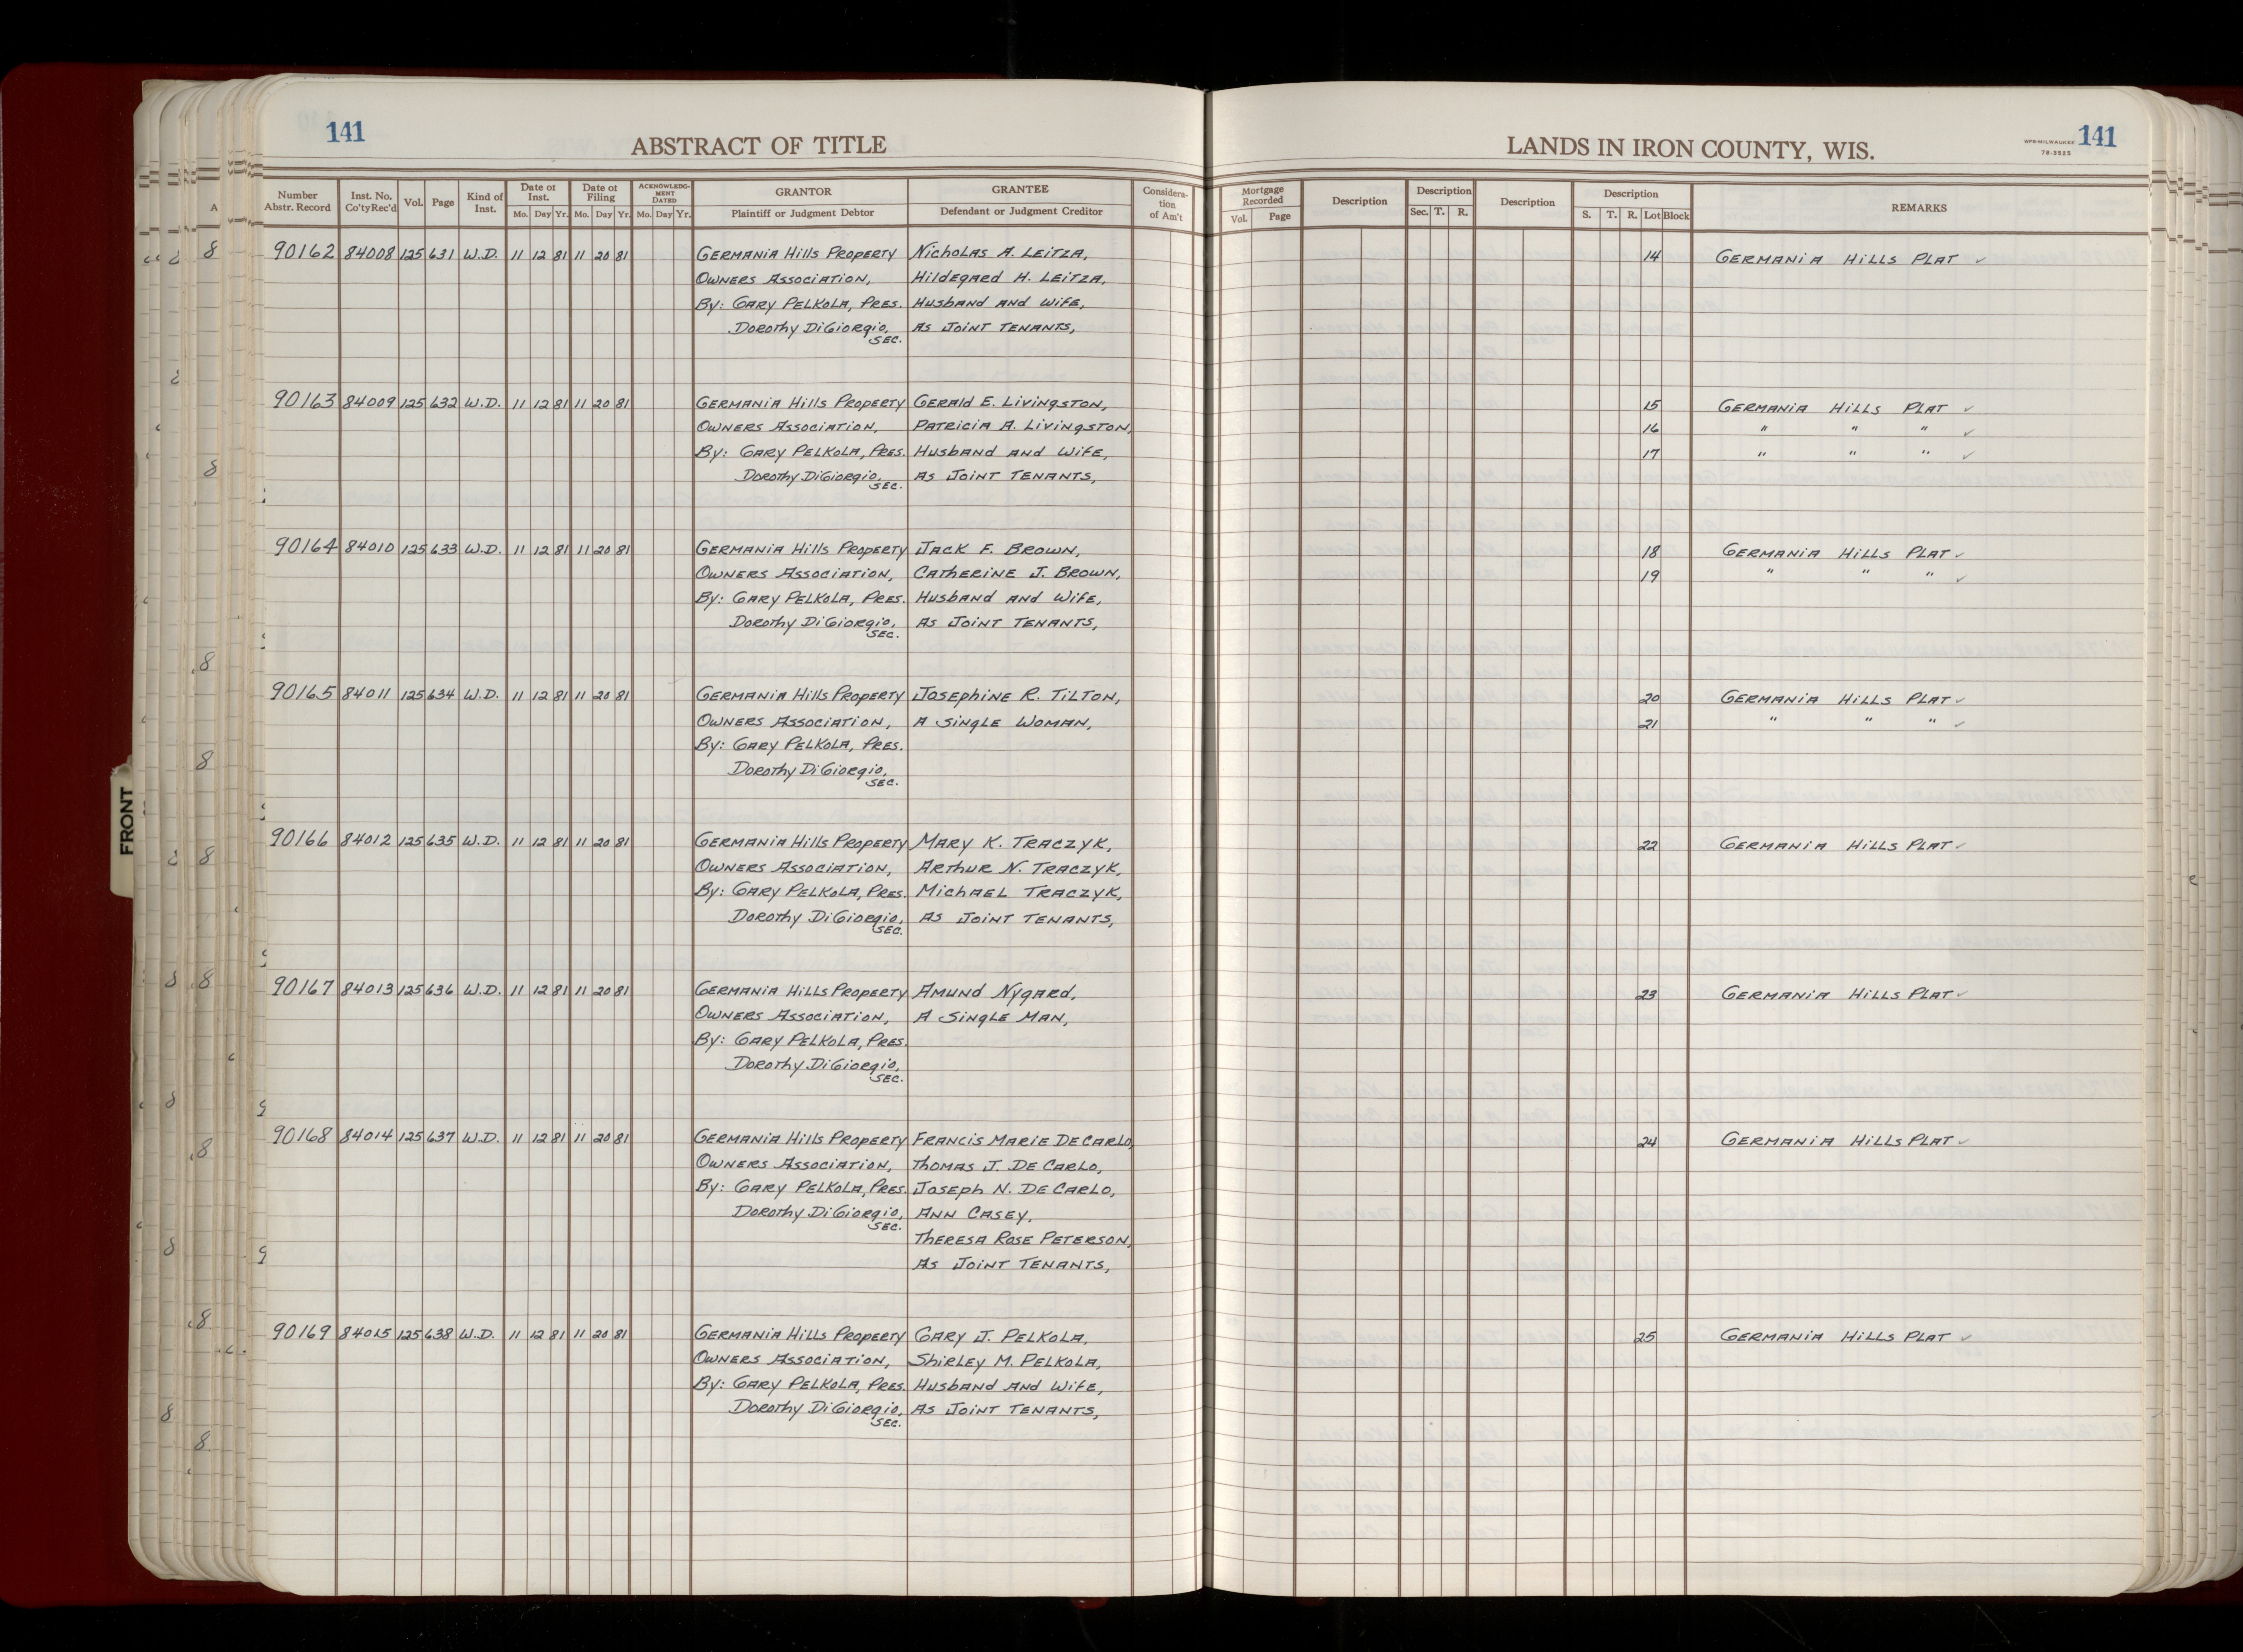 141
ABSTRACT OF TITLE
LANDS IN IRON COUNTY, WIS.
WPB-MILWAUKEE
78-3525
141
Number Abstr. Record | Inst. No. Co'ty Rec'd | Vol. | Page | Kind of Inst. | Date of Inst. Mo. Day Yr. | Date of Filing Mo. Day Yr. | ACKNOWLEDGMENT DATED Mo. Day Yr. | GRANTOR Plaintiff or Judgment Debtor | GRANTEE Defendant or Judgment Creditor | Consideration of Am't | Mortgage Recorded Vol. Page | Description | Description Sec. T. R. | Description | Description S. T. R. Lot Block | REMARKS
90162 84008 125 631 W.D. 11 12 81 11 20 81 Germania Hills Property Nicholas A. Leitza, 14 Germania Hills Plat ✓
Owners Association, Hildegard H. Leitza,
By: Gary Pelkola, Pres. Husband and Wife,
Dorothy DiGiorgio, Sec. As Joint Tenants,
90163 84009 125 632 W.D. 11 12 81 11 20 81 Germania Hills Property Gerald E. Livingston, 15 Germania Hills Plat ✓
Owners Association, Patricia A. Livingston, 16 " " " ✓
By: Gary Pelkola, Pres. Husband and Wife, 17 " " " ✓
Dorothy DiGiorgio, Sec. As Joint Tenants,
90164 84010 125 633 W.D. 11 12 81 11 20 81 Germania Hills Property Jack F. Brown, 18 Germania Hills Plat ✓
Owners Association, Catherine J. Brown, 19 " " " ✓
By: Gary Pelkola, Pres. Husband and Wife,
Dorothy DiGiorgio, Sec. As Joint Tenants,
90165 84011 125 634 W.D. 11 12 81 11 20 81 Germania Hills Property Josephine R. Tilton, 20 Germania Hills Plat ✓
Owners Association, A Single Woman, 21 " " " ✓
By: Gary Pelkola, Pres.
Dorothy DiGiorgio, Sec.
90166 84012 125 635 W.D. 11 12 81 11 20 81 Germania Hills Property Mary K. Traczyk, 22 Germania Hills Plat ✓
Owners Association, Arthur N. Traczyk,
By: Gary Pelkola, Pres. Michael Traczyk,
Dorothy DiGiorgio, Sec. As Joint Tenants,
90167 84013 125 636 W.D. 11 12 81 11 20 81 Germania Hills Property Amund Nygard, 23 Germania Hills Plat ✓
Owners Association, A Single Man,
By: Gary Pelkola, Pres.
Dorothy DiGiorgio, Sec.
90168 84014 125 637 W.D. 11 12 81 11 20 81 Germania Hills Property Francis Marie DeCarlo, 24 Germania Hills Plat ✓
Owners Association, Thomas J. DeCarlo,
By: Gary Pelkola, Pres. Joseph N. DeCarlo,
Dorothy DiGiorgio, Sec. Ann Casey,
Theresa Rose Peterson,
As Joint Tenants,
90169 84015 125 638 W.D. 11 12 81 11 20 81 Germania Hills Property Gary J. Pelkola, 25 Germania Hills Plat ✓
Owners Association, Shirley M. Pelkola,
By: Gary Pelkola, Pres. Husband and Wife,
Dorothy DiGiorgio, Sec. As Joint Tenants,
FRONT